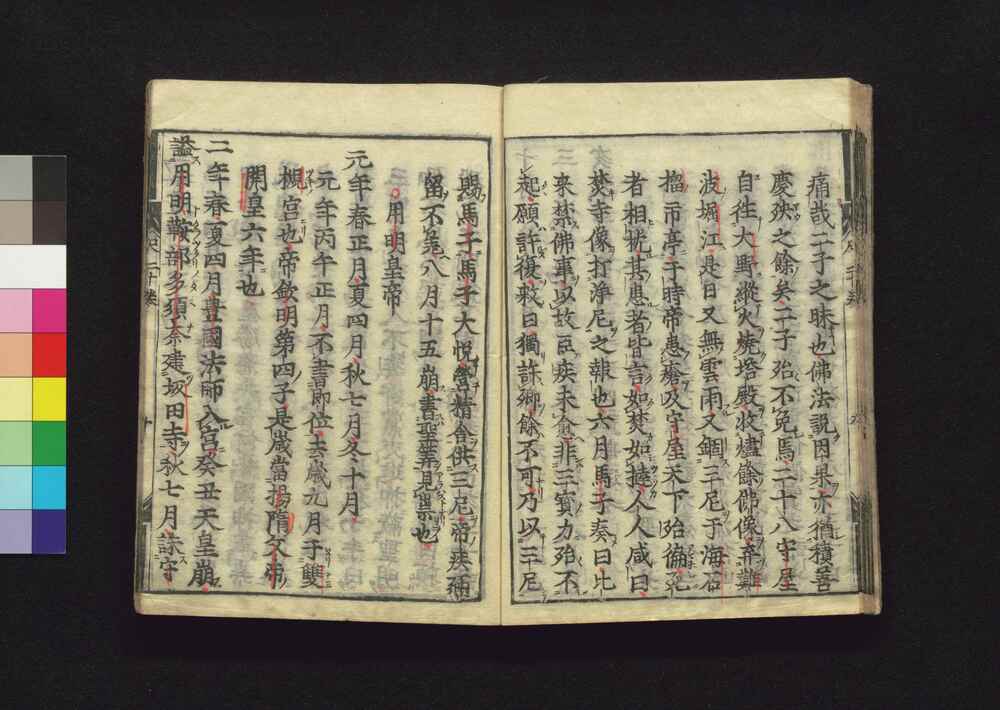 痛哉二子之昧也佛法說因果亦猶積善
慶殃之餘矣二子殆不免焉二十八守屋
自往大野縱火燒塔殿收燼餘佛像弃難
波堀江是日又無雲雨又錮三尼于海石
榴市亭于時帝患瘡及守屋天下殆徧死
者相枕其患者皆言如焚如撻人人咸曰
焚寺像打淨尼之報也六月馬子奏曰比
來禁佛事以故臣疾未愈非三寶力殆不
起願許復救曰獨許卿餘不可乃以三尼
賜馬子馬子大悅營精舍供三尼帝疾
留不
八月十五崩書聖業見祟也
用明皇帝
元年春正月夏四月秋七月冬十月
元年丙午正月不書即位去歲九月于雙
槻宮也帝欽明第四子是歲當楊隋文帝
開皇六年也
二年春夏四月豊國法師入宮癸丑天皇崩
謚用明鞍部多須奈建坂田寺秋七月誅守